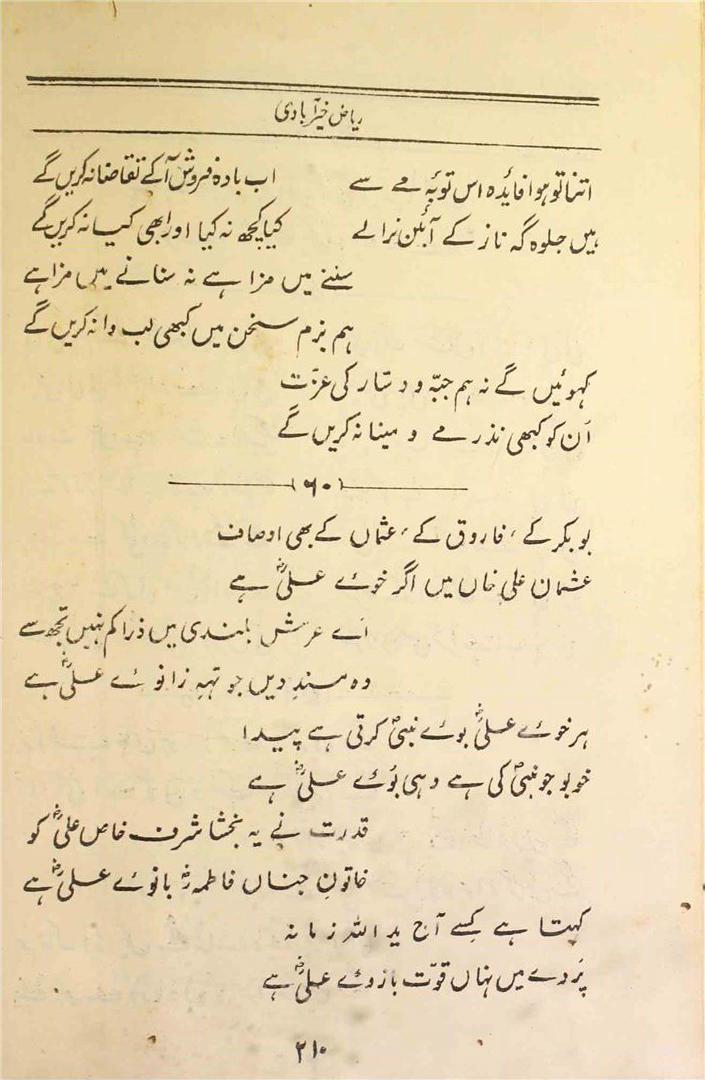 ریاض خیرآبادی
اتنا تو ہوا فایٔدہ اس توبۂ مے سے    اب بادہ فروش آکے تقاضا نہ کریں گے
ہیں جلوہ گہ ناز کے آئین نرالے    کیا کچھ نہ کیا اور ابھی کیا نہ کریں گے
سننے میں مزا ہے نہ سنانے میں مزا ہے
ہم بزم سخن میں کبھی لب وا نہ کریں گے
کہوئیں گے نہ ہم جبّہ و دستار کی عزّت
اُن کو کبھی نذر مے و مینا نہ کریں گے
(۶۰)
بوبکر کے، فاروق کے، عثماں کے بھی اوصاف
عثمان علی خاں میں اگر خوئے علیؓ ہے
اے عرش بلندی میں ذرا کم نہیں تجھ سے
وہ مسندِ دیں جو تہہِ زانوئے علیؓ ہے
ہر خوئے علیؓ بوئے نبیؐ کرتی ہے پیدا
خوبو جو نبیؐ کی ہے وہی بوُئے علیؓ ہے
قدرت نے یہ بخشا شرف خاص علیؓ کو
خاتونِ جناں فاطمہؓ بانوئے علیؓ ہے
کہتا ہے کِسے آج ید اللہ زمانہ
پَردے میں نہاں قوّت بازوئے علیؓ ہے
۲۱۰